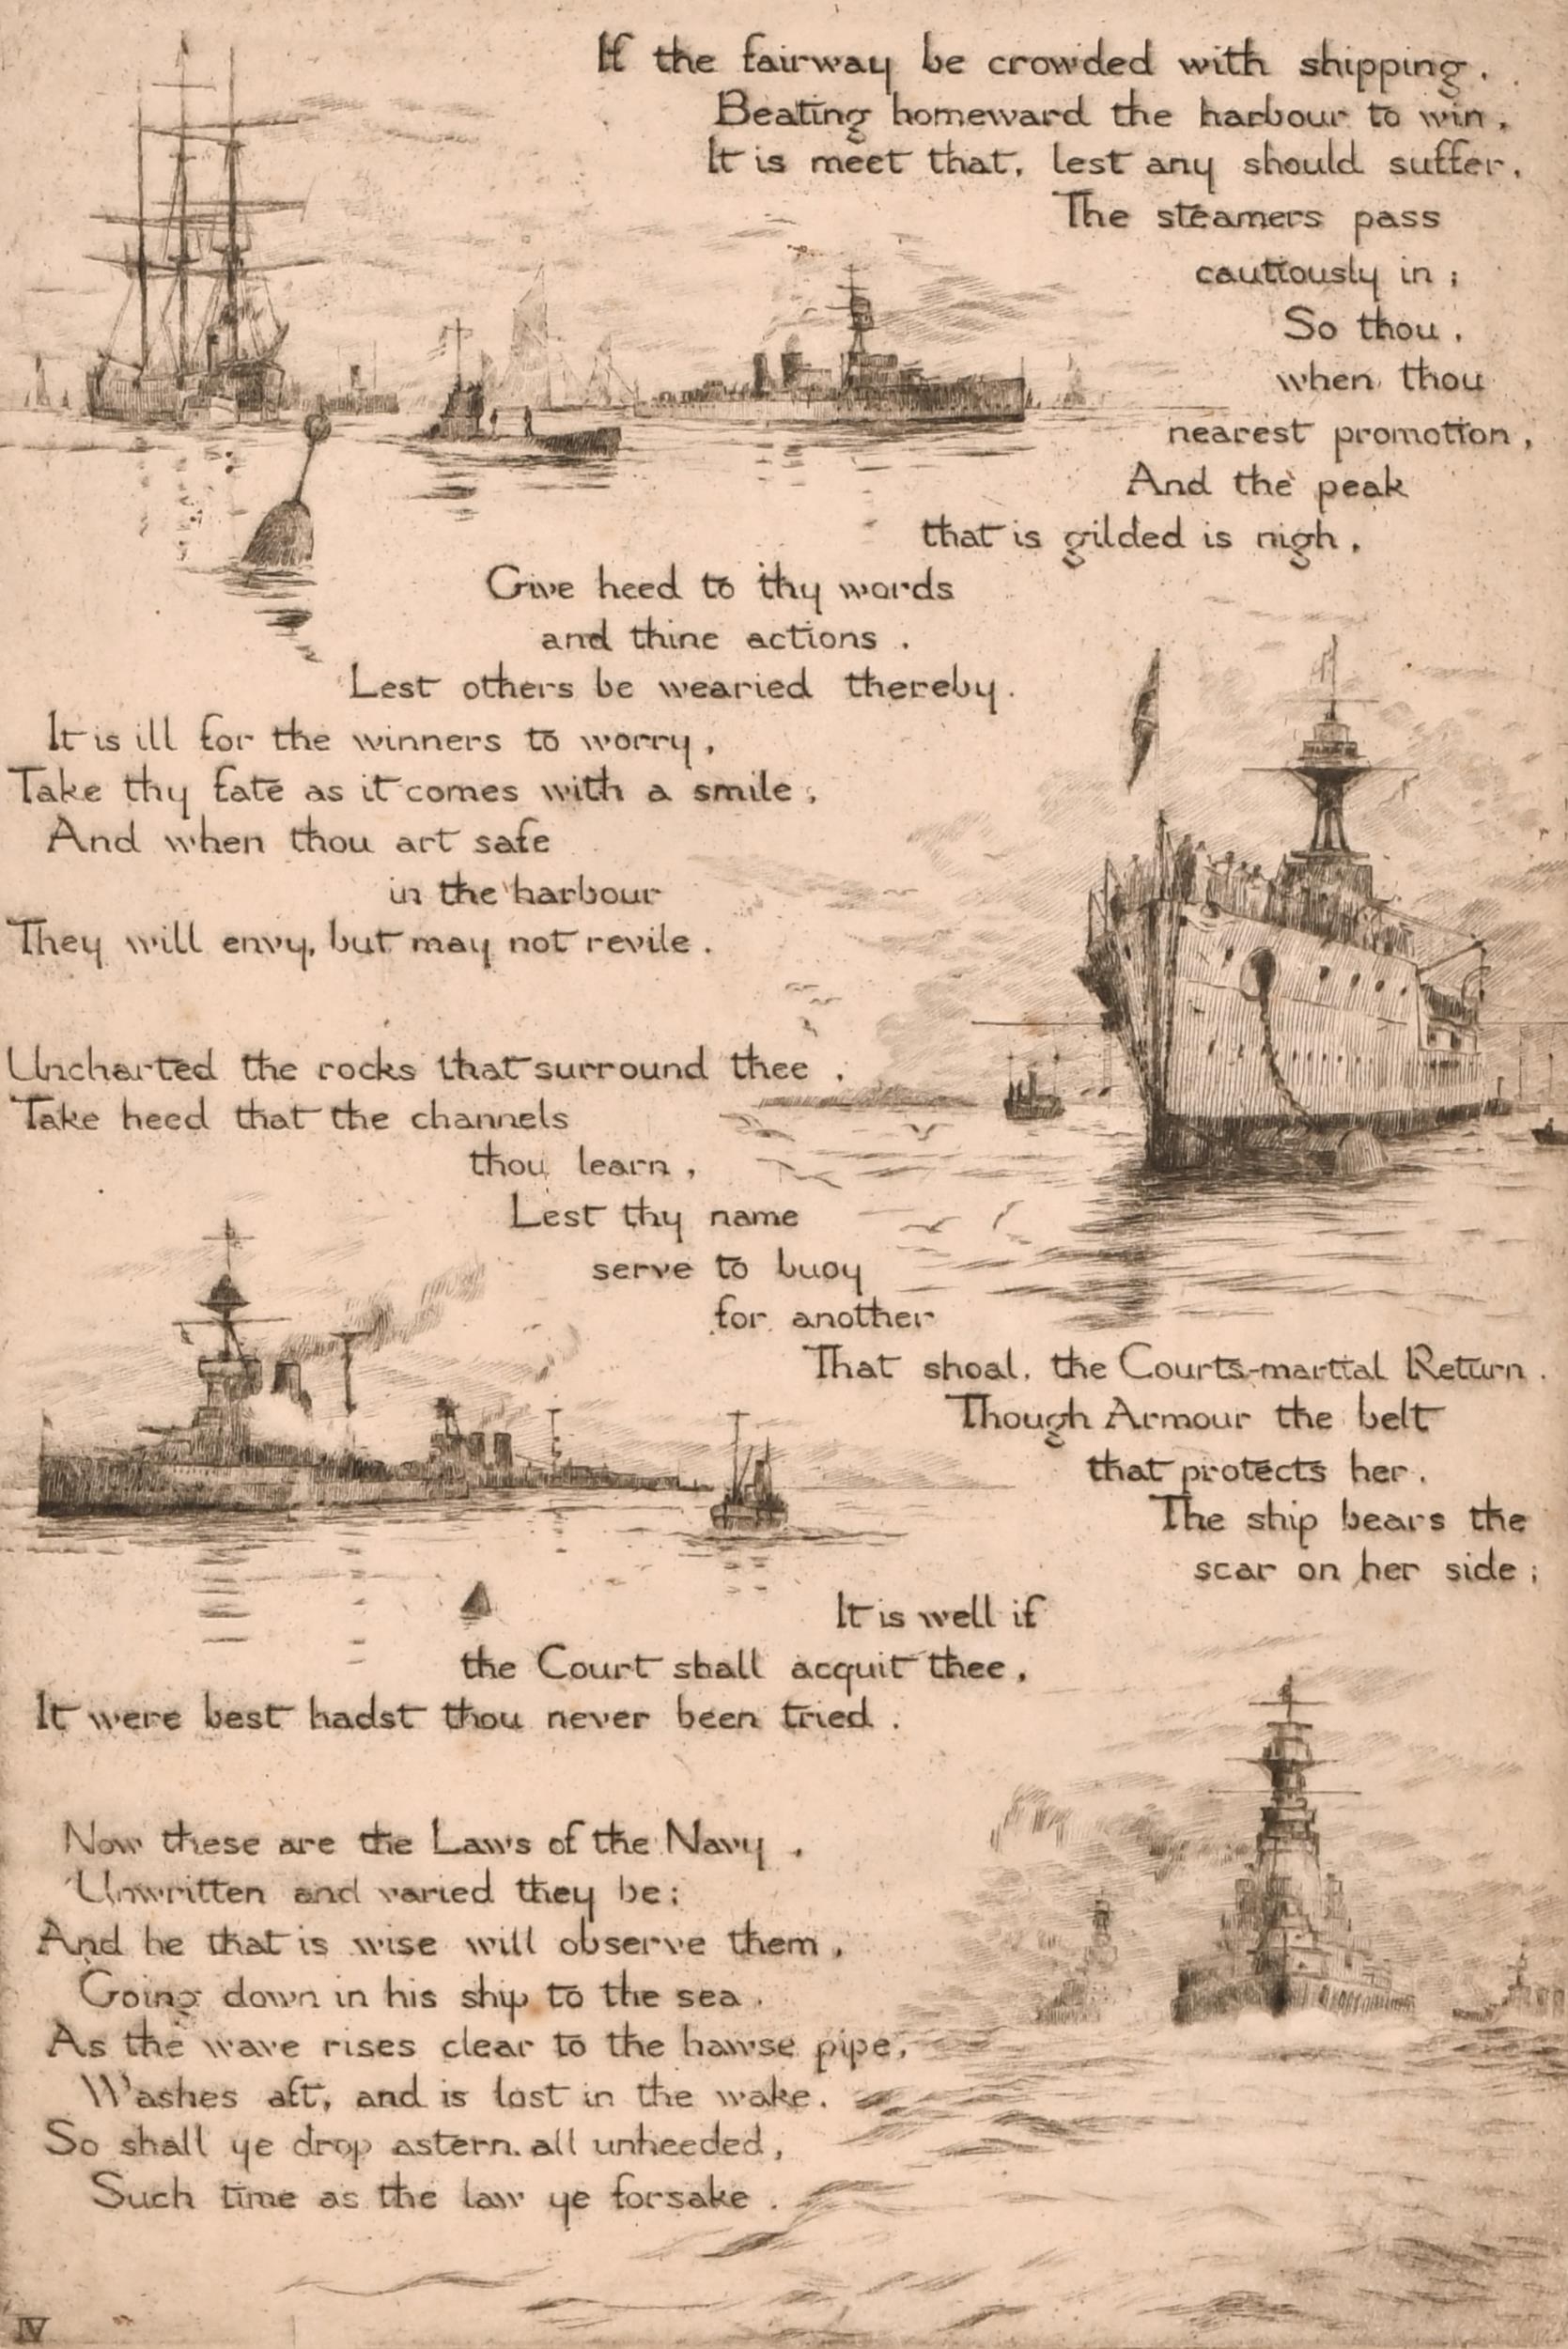 If the fairway be crowded with shipping.
Beating homeward the harbour to win,
It is meet that, lest any should suffer,
The steamers pass
cautiously in ;
So thou,
when thou
nearest promotion,
And the peak
that is gilded is nigh,
Give heed to thy words
and thine actions.
Lest others be wearied thereby.
It is ill for the winners to worry,
Take thy fate as it comes with a smile,
And when thou art safe
in the harbour
They will envy, but may not revile.
Uncharted the rocks that surround thee,
Take heed that the channels
thou learn,
Lest thy name
serve to buoy
for another
That shoal, the Courts-martial Return.
Though Armour the belt
that protects her,
The ship bears the
scar on her side ;
It is well if
the Court shall acquit thee,
It were best hadst thou never been tried.
Now these are the Laws of the Navy,
Unwritten and varied they be;
And he that is wise will observe them,
Going down in his ship to the sea.
As the wave rises clear to the hawse pipe,
Washes aft, and is lost in the wake.
So shall ye drop astern. all unheeded,
Such time as the law ye forsake.
IV